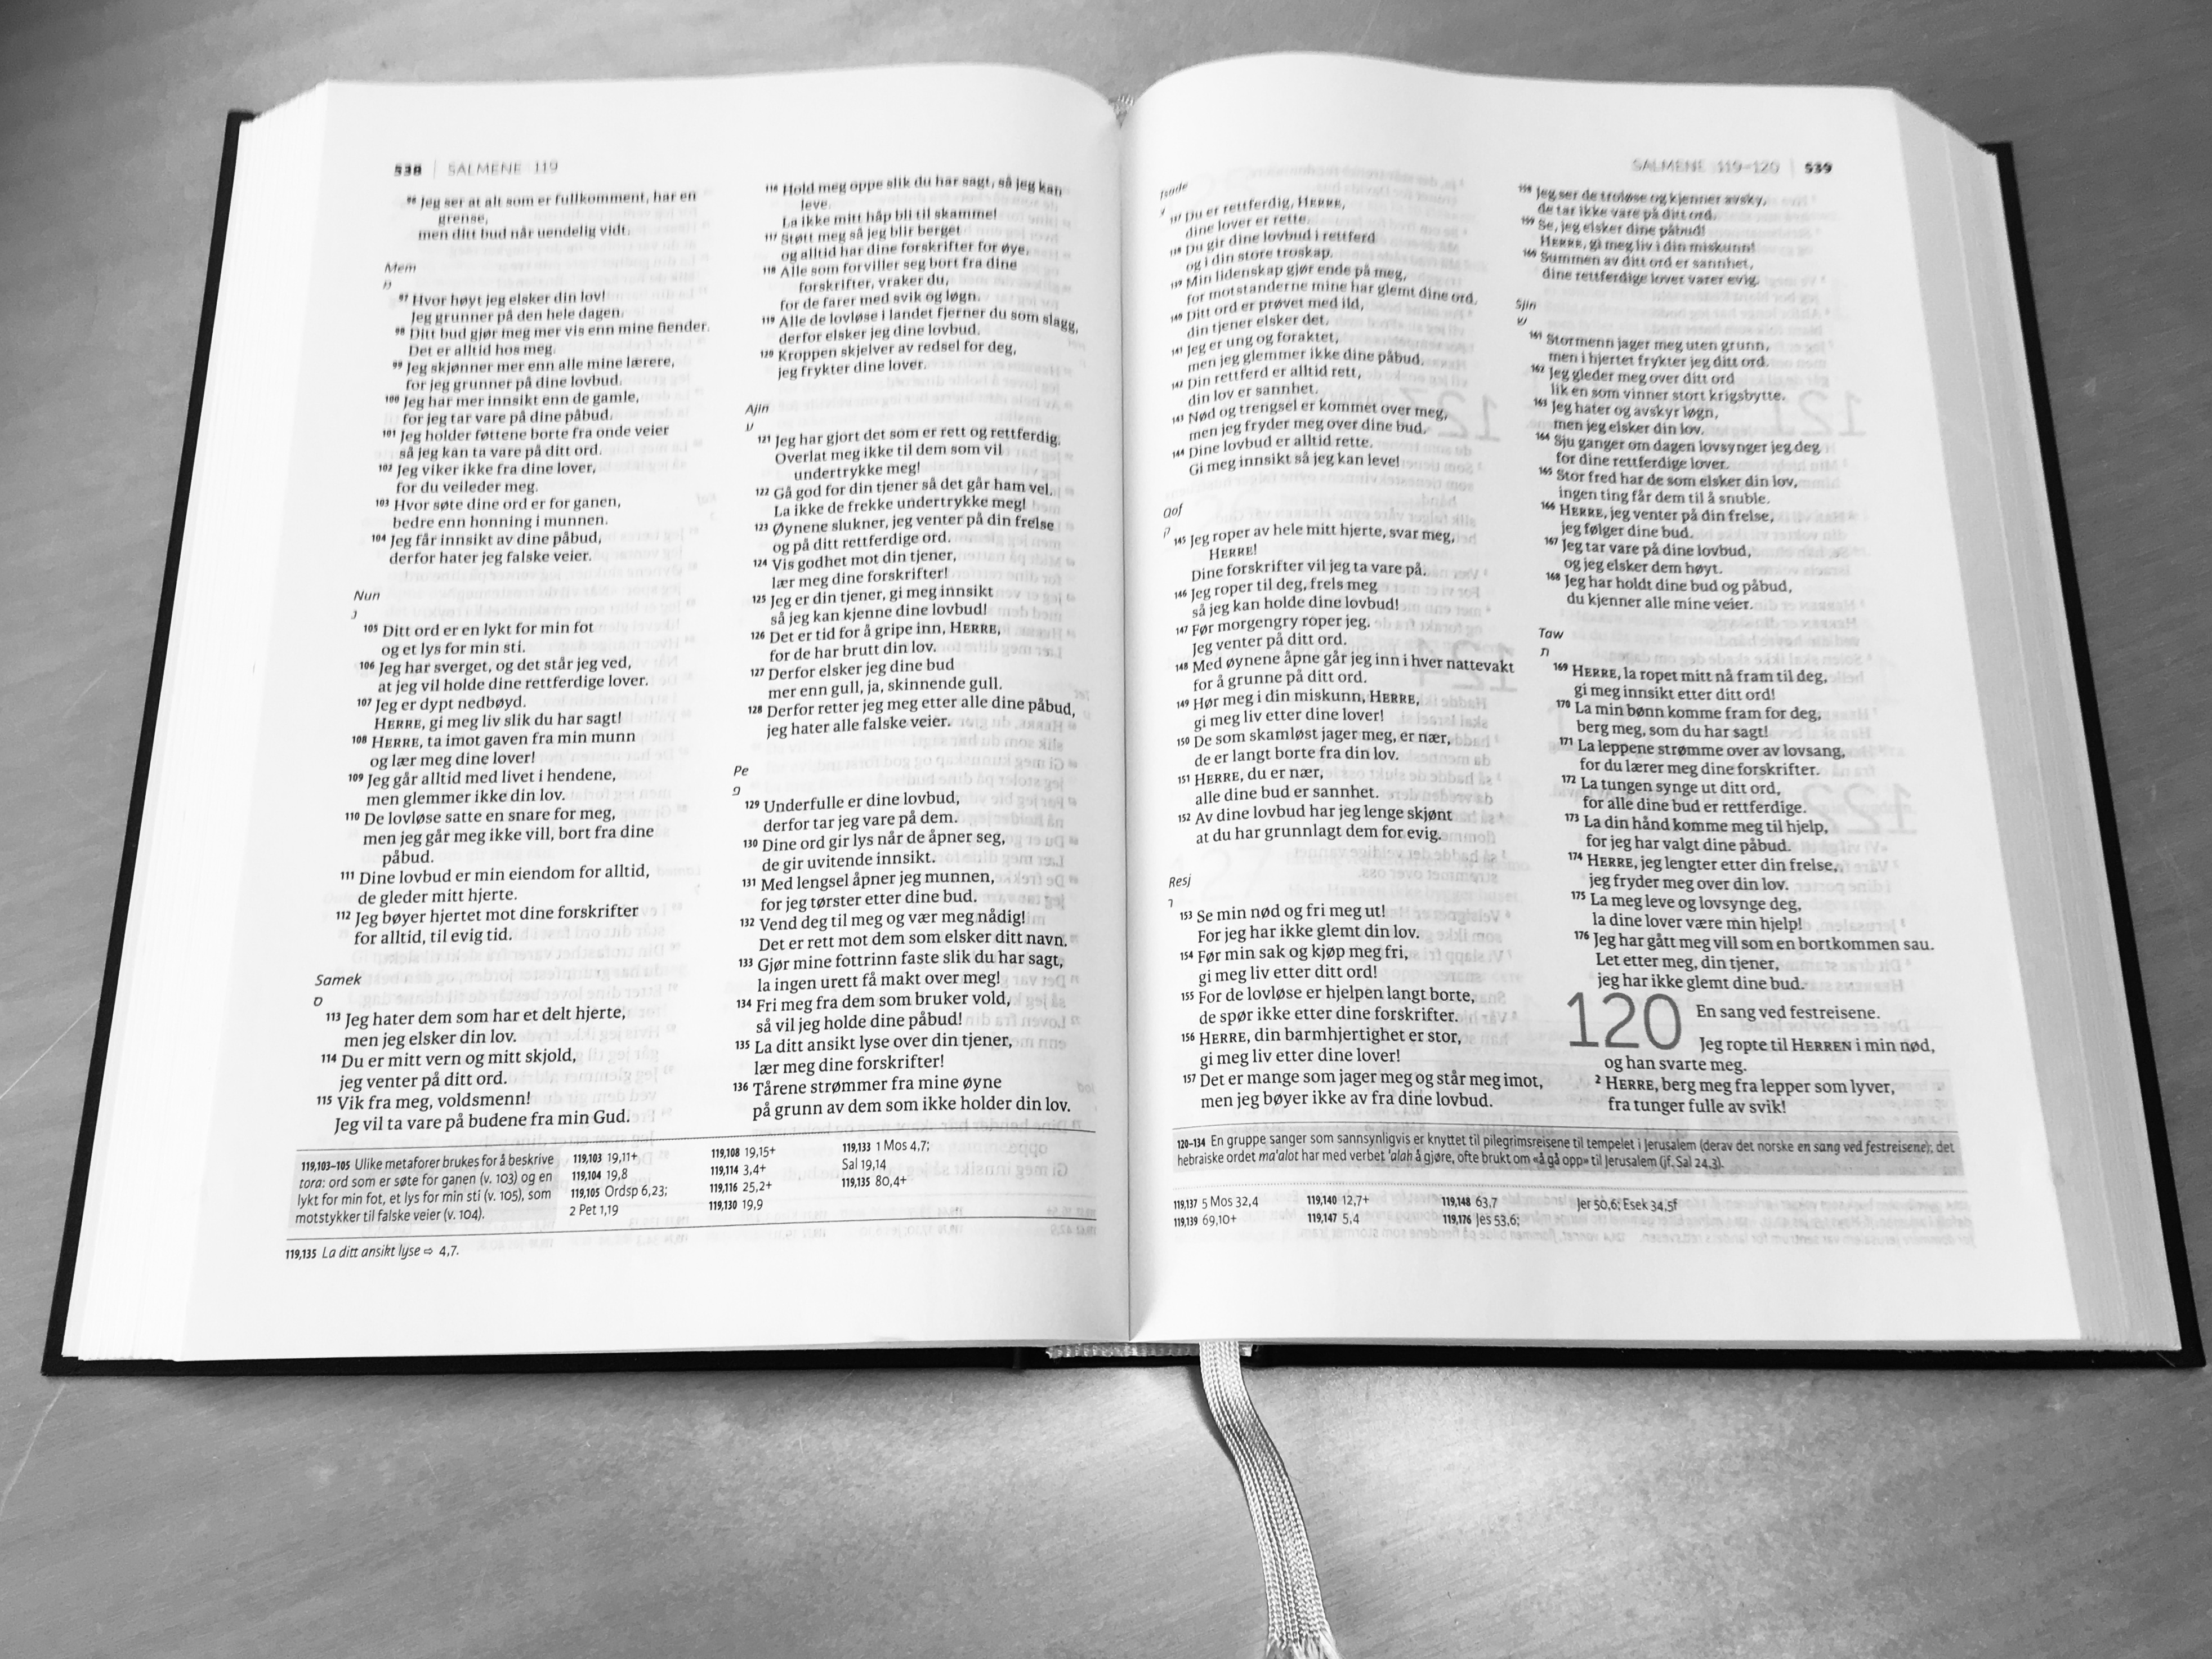 538 | SALMENE 119
96 Jeg ser at alt som er fullkomment, har en
grense,
men ditt bud når uendelig vidt.
Mem
מ
97 Hvor høyt jeg elsker din lov!
Jeg grunner på den hele dagen.
98 Ditt bud gjør meg mer vis enn mine fiender.
Det er alltid hos meg.
99 Jeg skjønner mer enn alle mine lærere,
for jeg grunner på dine lovbud.
100 Jeg har mer innsikt enn de gamle,
for jeg tar vare på dine påbud.
101 Jeg holder føttene borte fra onde veier
så jeg kan ta vare på ditt ord.
102 Jeg viker ikke fra dine lover,
for du veileder meg.
103 Hvor søte dine ord er for ganen,
bedre enn honning i munnen.
104 Jeg får innsikt av dine påbud,
derfor hater jeg falske veier.
Nun
נ
105 Ditt ord er en lykt for min fot
og et lys for min sti.
106 Jeg har sverget, og det står jeg ved,
at jeg vil holde dine rettferdige lover.
107 Jeg er dypt nedbøyd.
HERRE, gi meg liv slik du har sagt!
108 HERRE, ta imot gaven fra min munn
og lær meg dine lover!
109 Jeg går alltid med livet i hendene,
men glemmer ikke din lov.
110 De lovløse satte en snare for meg,
men jeg går meg ikke vill, bort fra dine
påbud.
111 Dine lovbud er min eiendom for alltid,
de gleder mitt hjerte.
112 Jeg bøyer hjertet mot dine forskrifter
for alltid, til evig tid.
Samek
ס
113 Jeg hater dem som har et delt hjerte,
men jeg elsker din lov.
114 Du er mitt vern og mitt skjold,
jeg venter på ditt ord.
115 Vik fra meg, voldsmenn!
Jeg vil ta vare på budene fra min Gud.
116 Hold meg oppe slik du har sagt, så jeg kan
leve.
La ikke mitt håp bli til skamme!
117 Støtt meg så jeg blir berget
og alltid har dine forskrifter for øye.
118 Alle som forviller seg bort fra dine
forskrifter, vraker du,
for de farer med svik og løgn.
119 Alle de lovløse i landet fjerner du som slagg,
derfor elsker jeg dine lovbud.
120 Kroppen skjelver av redsel for deg,
jeg frykter dine lover.
Ajin
ע
121 Jeg har gjort det som er rett og rettferdig.
Overlat meg ikke til dem som vil
undertrykke meg!
122 Gå god for din tjener så det går ham vel.
La ikke de frekke undertrykke meg!
123 Øynene slukner, jeg venter på din frelse
og på ditt rettferdige ord.
124 Vis godhet mot din tjener,
lær meg dine forskrifter!
125 Jeg er din tjener, gi meg innsikt
så jeg kan kjenne dine lovbud!
126 Det er tid for å gripe inn, HERRE,
for de har brutt din lov.
127 Derfor elsker jeg dine bud
mer enn gull, ja, skinnende gull.
128 Derfor retter jeg meg etter alle dine påbud,
jeg hater alle falske veier.
Pe
פ
129 Underfulle er dine lovbud,
derfor tar jeg vare på dem.
130 Dine ord gir lys når de åpner seg,
de gir uvitende innsikt.
131 Med lengsel åpner jeg munnen,
for jeg tørster etter dine bud.
132 Vend deg til meg og vær meg nådig!
Det er rett mot dem som elsker ditt navn.
133 Gjør mine fottrinn faste slik du har sagt,
la ingen urett få makt over meg!
134 Fri meg fra dem som bruker vold,
så vil jeg holde dine påbud!
135 La ditt ansikt lyse over din tjener,
lær meg dine forskrifter!
136 Tårene strømmer fra mine øyne
på grunn av dem som ikke holder din lov.
119,103–105 Ulike metaforer brukes for å beskrive
tora: ord som er søte for ganen (v. 103) og en
lykt for min fot, et lys for min sti (v. 105), som
motstykker til falske veier (v. 104).
119,103 19,11+
119,104 19,8
119,105 Ordsp 6,23;
2 Pet 1,19
119,108 19,15+
119,114 3,4+
119,116 25,2+
119,130 19,9
119,133 1 Mos 4,7;
Sal 19,14
119,135 80,4+
119,135 La ditt ansikt lyse ⇨ 4,7.
SALMENE 119–120 | 539
Tsade
צ
137 Du er rettferdig, HERRE,
dine lover er rette.
138 Du gir dine lovbud i rettferd
og i din store troskap.
139 Min lidenskap gjør ende på meg,
for motstanderne mine har glemt dine ord.
140 Ditt ord er prøvet med ild,
din tjener elsker det.
141 Jeg er ung og foraktet,
men jeg glemmer ikke dine påbud.
142 Din rettferd er alltid rett,
din lov er sannhet.
143 Nød og trengsel er kommet over meg,
men jeg fryder meg over dine bud.
144 Dine lovbud er alltid rette.
Gi meg innsikt så jeg kan leve!
Qof
ק
145 Jeg roper av hele mitt hjerte, svar meg,
HERRE!
Dine forskrifter vil jeg ta vare på.
146 Jeg roper til deg, frels meg
så jeg kan holde dine lovbud!
147 Før morgengry roper jeg.
Jeg venter på ditt ord.
148 Med øynene åpne går jeg inn i hver nattevakt
for å grunne på ditt ord.
149 Hør meg i din miskunn, HERRE,
gi meg liv etter dine lover!
150 De som skamløst jager meg, er nær,
de er langt borte fra din lov.
151 HERRE, du er nær,
alle dine bud er sannhet.
152 Av dine lovbud har jeg lenge skjønt
at du har grunnlagt dem for evig.
Resj
ר
153 Se min nød og fri meg ut!
For jeg har ikke glemt din lov.
154 Før min sak og kjøp meg fri,
gi meg liv etter ditt ord!
155 For de lovløse er hjelpen langt borte,
de spør ikke etter dine forskrifter.
156 HERRE, din barmhjertighet er stor,
gi meg liv etter dine lover!
157 Det er mange som jager meg og står meg imot,
men jeg bøyer ikke av fra dine lovbud.
158 Jeg ser de troløse og kjenner avsky,
de tar ikke vare på ditt ord.
159 Se, jeg elsker dine påbud!
HERRE, gi meg liv i din miskunn!
160 Summen av ditt ord er sannhet,
dine rettferdige lover varer evig.
Sjin
ש
161 Stormenn jager meg uten grunn,
men i hjertet frykter jeg ditt ord.
162 Jeg gleder meg over ditt ord
lik en som vinner stort krigsbytte.
163 Jeg hater og avskyr løgn,
men jeg elsker din lov.
164 Sju ganger om dagen lovsynger jeg deg
for dine rettferdige lover.
165 Stor fred har de som elsker din lov,
ingen ting får dem til å snuble.
166 HERRE, jeg venter på din frelse,
jeg følger dine bud.
167 Jeg tar vare på dine lovbud,
og jeg elsker dem høyt.
168 Jeg har holdt dine bud og påbud,
du kjenner alle mine veier.
Taw
ת
169 HERRE, la ropet mitt nå fram til deg,
gi meg innsikt etter ditt ord!
170 La min bønn komme fram for deg,
berg meg, som du har sagt!
171 La leppene strømme over av lovsang,
for du lærer meg dine forskrifter.
172 La tungen synge ut ditt ord,
for alle dine bud er rettferdige.
173 La din hånd komme meg til hjelp,
for jeg har valgt dine påbud.
174 HERRE, jeg lengter etter din frelse,
jeg fryder meg over din lov.
175 La meg leve og lovsynge deg,
la dine lover være min hjelp!
176 Jeg har gått meg vill som en bortkommen sau.
Let etter meg, din tjener,
jeg har ikke glemt dine bud.
120 En sang ved festreisene.
Jeg ropte til HERREN i min nød,
og han svarte meg.
2 HERRE, berg meg fra lepper som lyver,
fra tunger fulle av svik!
120–134 En gruppe sanger som sannsynligvis er knyttet til pilegrimsreisene til tempelet i Jerusalem (derav det norske en sang ved festreisene); det
hebraiske ordet ma'alot har med verbet 'alah å gjøre, ofte brukt om «å gå opp» til Jerusalem (jf. Sal 24,3).
119,137 5 Mos 32,4
119,139 69,10+
119,140 12,7+
119,147 5,4
119,148 63,7
119,176 Jes 53,6;
Jer 50,6; Esek 34,5f